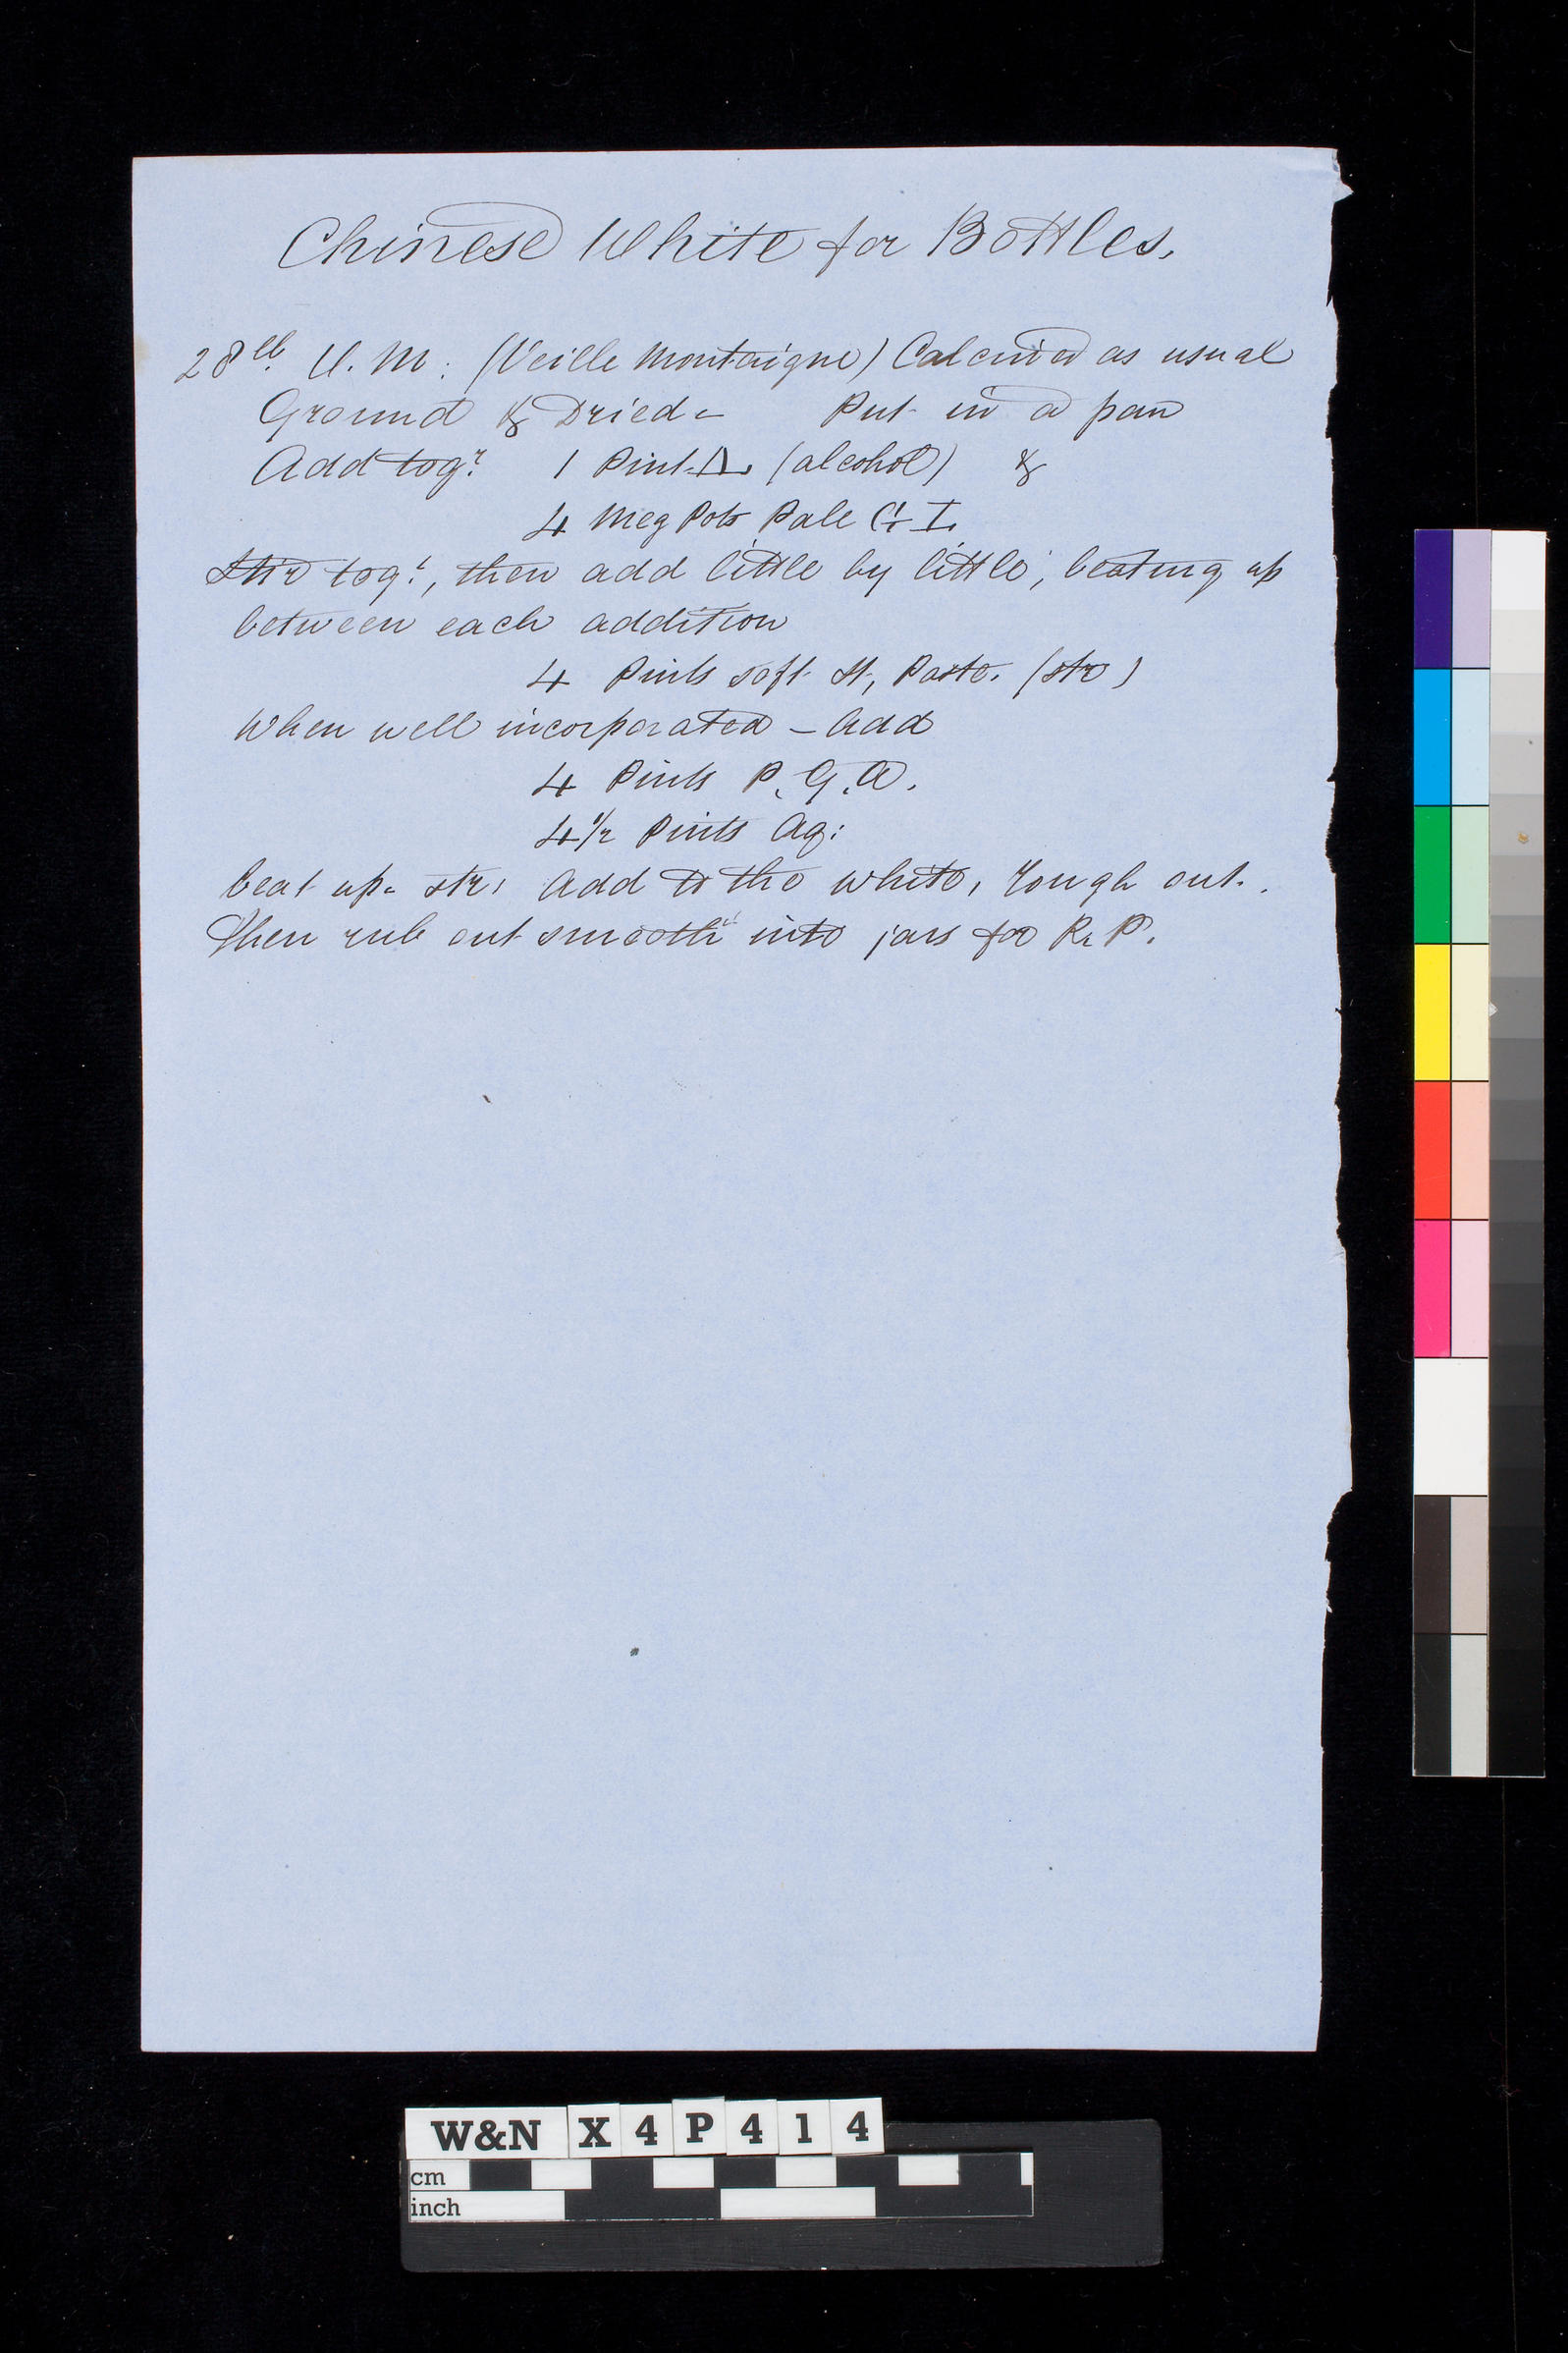 Chinese White for Bottles.
28 lb. V. M: (Veille Montaigne) Calcined as usual
Ground & Dried - Put in a pan
Add togr. 1 Pint (alcohol) &
4 Meg Pots Pale G I.
Stir togr., then add little by little, beating up
between each addition
4 Pints soft St, Paste. (str)
When well incorporated - Add
4 Pints P. G. A.
4 1/2 Pints Aq:
beat up - str, Add to the white, rough out.
Then rub out smooth into jars for R. P.
W&N X 4 P 4 1 4
cm
inch